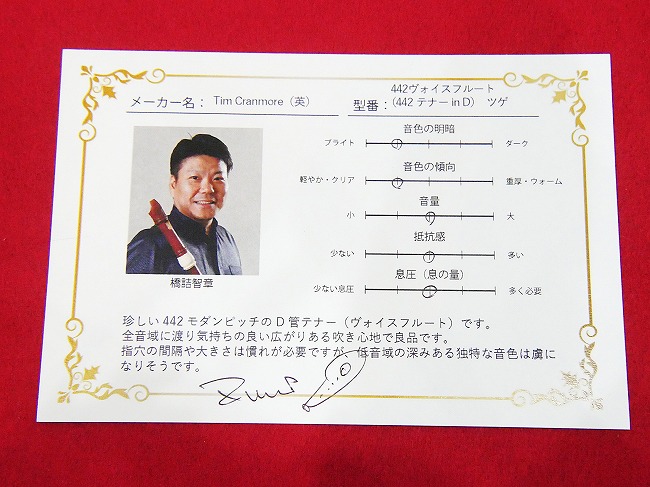 メーカー名： Tim Cranmore（英）
型番：442ヴォイスフルート
（442 テナー in D） ツゲ
音色の明暗
ブライト ダーク
音色の傾向
軽やか・クリア 重厚・ウォーム
音量
小 大
抵抗感
少ない 多い
息圧（息の量）
少ない息圧 多く必要
橋詰智章
珍しい 442 モダンピッチの D 管テナー（ヴォイスフルート）です。
全音域に渡り気持ちの良い広がりある吹き心地で良品です。
指穴の間隔や大きさは慣れが必要ですが、低音域の深みある独特な音色は虜に
なりそうです。